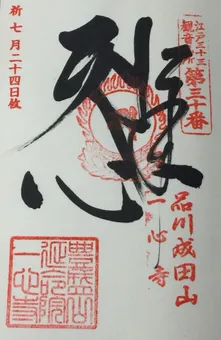 江戸三十三
観音札所
第三十番
品川成田山
一心寺
祈 七月二十四日攸
豊盛山
延命院
一心寺